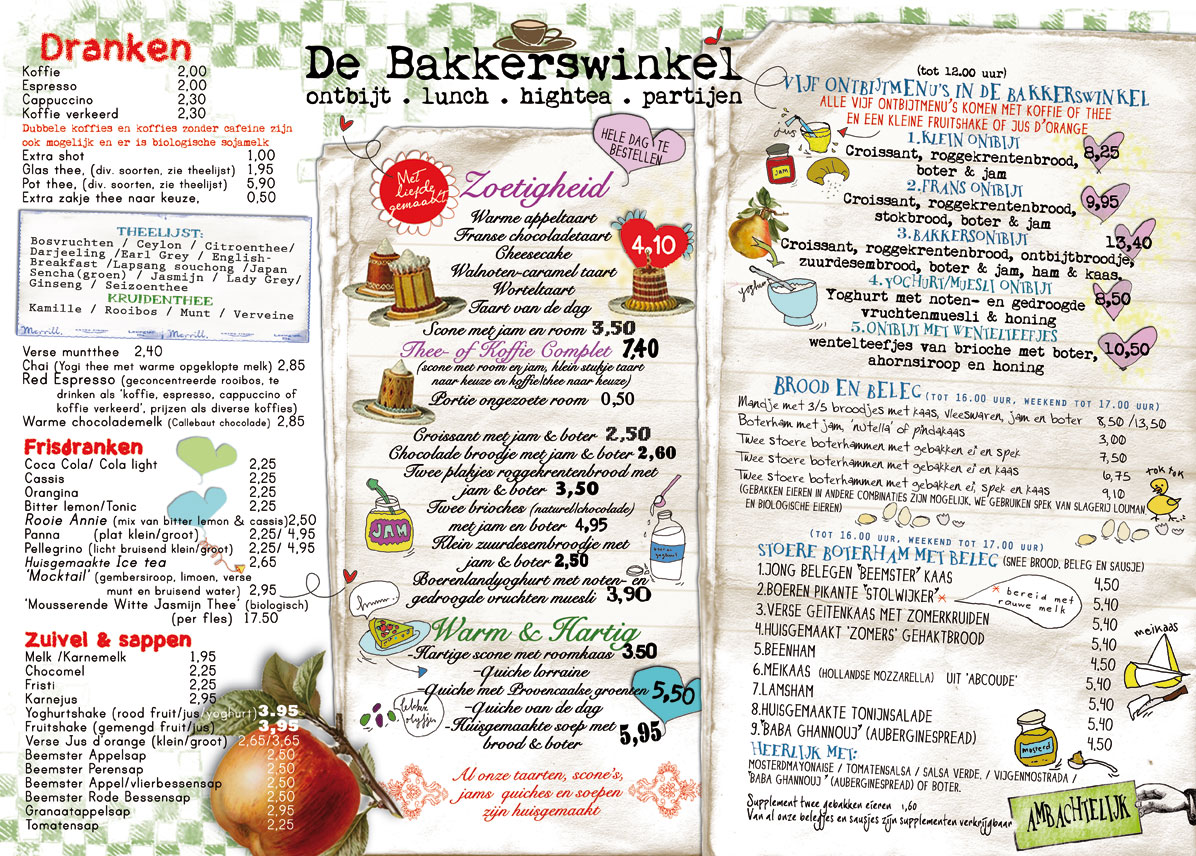 Dranken
Koffie 2,00
Espresso 2,00
Cappuccino 2,30
Koffie verkeerd 2,30
Dubbele koffies en koffies zonder cafeine zijn
ook mogelijk en er is biologische sojamelk
Extra shot 1,00
Glas thee, (div. soorten, zie theelijst) 1,95
Pot thee, (div. soorten, zie theelijst) 5,90
Extra zakje thee naar keuze, 0,50
THEELIJST:
Bosvruchten / Ceylon / Citroenthee/
Darjeeling /Earl Grey / English-
Breakfast /Lapsang souchong /Japan
Sencha(groen) / Jasmijn / Lady Grey/
Ginseng / Seizoenthee
KRUIDENTHEE
Kamille / Rooibos / Munt / Verveine
Merrill. Merrill.
Verse muntthee 2,40
Chai (Yogi thee met warme opgeklopte melk) 2,85
Red Espresso (geconcentreerde rooibos, te
drinken als 'koffie, espresso, cappucino of
koffie verkeerd', prijzen als diverse koffies)
Warme chocolademelk (Callebaut chocolade) 2,85
Frisdranken
Coca Cola/ Cola light 2,25
Cassis 2,25
Orangina 2,25
Bitter lemon/Tonic 2,25
Rooie Annie (mix van bitter lemon & cassis)2,50
Panna (plat klein/groot) 2,25/ 4,95
Pellegrino (licht bruisend klein/groot) 2,25/ 4,95
Huisgemaakte Ice tea 2,65
'Mocktail' (gembersiroop, limoen, verse
munt en bruisend water) 2,95
'Mousserende Witte Jasmijn Thee' (biologisch)
(per fles) 17.50
Zuivel & sappen
Melk /Karnemelk 1,95
Chocomel 2,25
Fristi 2,25
Karnejus 2,95
Yoghurtshake (rood fruit/jus/yoghurt)3.95
Fruitshake (gemengd fruit/jus) 3,95
Verse Jus d'orange (klein/groot) 2,65/3,65
Beemster Appelsap 2,50
Beemster Perensap 2,50
Beemster Appel/vlierbessensap 2,50
Beemster Rode Bessensap 2,50
Granaatappelsap 2,95
Tomatensap 2,25
De Bakkerswinkel
ontbijt . lunch . hightea . partijen
HELE DAG TE
BESTELLEN
Met
liefde
gemaakt
Zoetigheid
Warme appeltaart
Franse chocoladetaart
Cheesecake
4,10
Walnoten-caramel taart
Worteltaart
Taart van de dag
Scone met jam en room 3,50
Thee- of Koffie Complet 7,40
(scone met room en jam, klein stukje taart
naar keuze en koffie/thee naar keuze)
Portie ongezoete room 0,50
Croissant met jam & boter 2,50
Chocolade broodje met jam & boter 2,60
Twee plakjes roggekrentenbrood met
jam & boter 3,50
Twee brioches (naturel/chocolade)
met jam en boter 4,95
Klein zuurdesembroodje met
jam & boter 2,50
Boerenlandyoghurt met noten- en
gedroogde vruchten muesli 3,90
JAM
hmm..
Warm & Hartig
-Hartige scone met roomkaas 3.50
-Quiche lorraine
-Quiche met Provencaalse groenten 5,50
-Quiche van de dag
-Huisgemaakte soep met
brood & boter 5,95
lekker
olijfjes
Al onze taarten, scone's,
jams quiches en soepen
zijn huisgemaakt
(tot 12.00 uur)
VIJF ONTBIJTMENU'S IN DE BAKKERSWINKEL
ALLE VIJF ONTBIJTMENU'S KOMEN MET KOFFIE OF THEE
EN EEN KLEINE FRUITSHAKE OF JUS D'ORANGE
jus
JAM
1.KLEIN ONTBIJT
Croissant, roggekrentenbrood, 8,25
boter & jam
2.FRANS ONTBIJT
Croissant, roggekrentenbrood, 9,95
stokbrood, boter & jam
3.BAKKERSONTBIJT 13,40
Croissant, roggekrentenbrood, ontbijtbroodje,
zuurdesembrood, boter & jam, ham & kaas.
yoghurt
4.YOGHURT/MUESLI ONTBIJT
Yoghurt met noten- en gedroogde 8,50
vruchtenmuesli & honing
5.ONTBIJT MET WENTELTEEFJES
wentelteefjes van brioche met boter, 10,50
ahornsiroop en honing
BROOD EN BELEG (TOT 16.00 UUR, WEEKEND TOT 17.00 UUR)
Mandje met 3/5 broodjes met kaas, vleeswaren, jam en boter 8,50 /13,50
Boterham met jam, 'nutella' of pindakaas 3,00
Twee stoere boterhammen met gebakken ei en spek 7,50
Twee stoere boterhammen met gebakken ei en kaas 6,75
Twee stoere boterhammen met gebakken ei, spek en kaas 9,10
(GEBAKKEN EIEREN IN ANDERE COMBINATIES ZIJN MOGELIJK. WE GEBRUIKEN SPEK VAN SLAGERIJ LOUMAN
EN BIOLOGISCHE EIEREN)
tok tok
(TOT 16.00 UUR, WEEKEND TOT 17.00 UUR)
STOERE BOTERHAM MET BELEG (SNEE BROOD, BELEG EN SAUSJE)
1.JONG BELEGEN "BEEMSTER" KAAS 4,50
2.BOEREN PIKANTE "STOLWIJKER"* 5,40
* bereid met
rauwe melk
3.VERSE GEITENKAAS MET ZOMERKRUIDEN 5,40
4.HUISGEMAAKT 'ZOMERS' GEHAKTBROOD 5,40
5.BEENHAM 4,50
6.MEIKAAS (HOLLANDSE MOZZARELLA) UIT 'ABCOUDE' 5,40
7.LAMSHAM 5,40
8.HUISGEMAAKTE TONIJNSALADE 5,40
9."BABA GHANNOUJ" (AUBERGINESPREAD) 4,50
meikaas
mosterd
HEERLIJK MET:
MOSTERDMAYONAISE / TOMATENSALSA / SALSA VERDE, / VIJGENMOSTRADA /
"BABA GHANNOUJ "(AUBERGINESPREAD) OF BOTER.
Supplement twee gebakken eieren 1,60
Van al onze belegfjes en sausjes zijn supplementen verkrijgbaar
AMBACHTELIJK